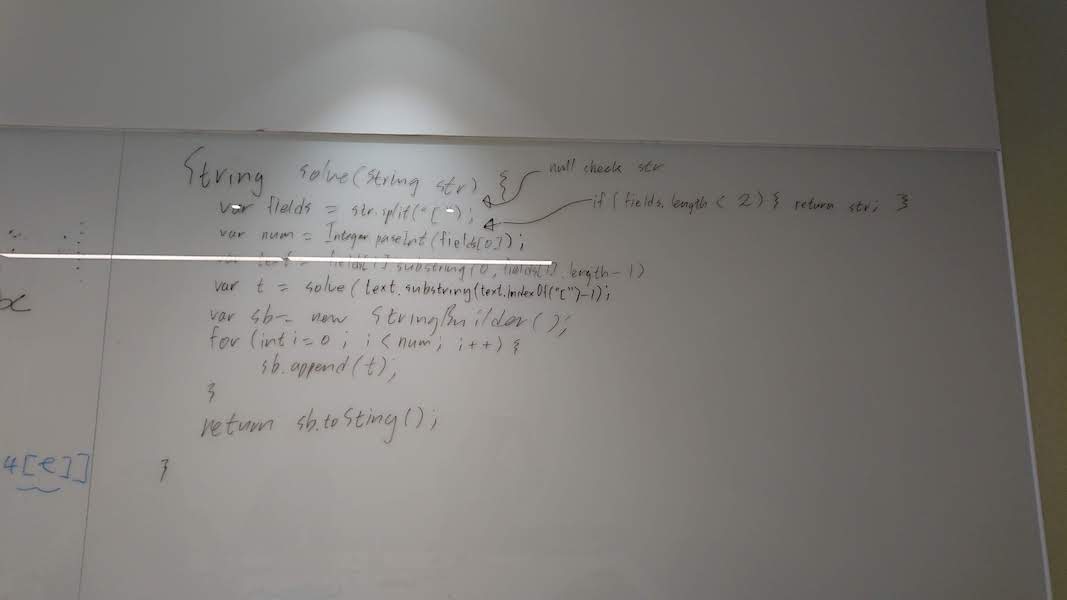 String solve(String str) {
null check str
var fields = str.split("[");
if (fields.length < 2) { return str; }
var num = Integer.paseInt(fields[0]);
var text = fields[1].substring(0, fields[1].length-1)
var t = solve(text.substring(text.indexOf("[")-1);
var sb = new StringBuilder();
for (int i=0; i<num; i++) {
sb.append(t);
}
return sb.toSting();
}
4[e]]